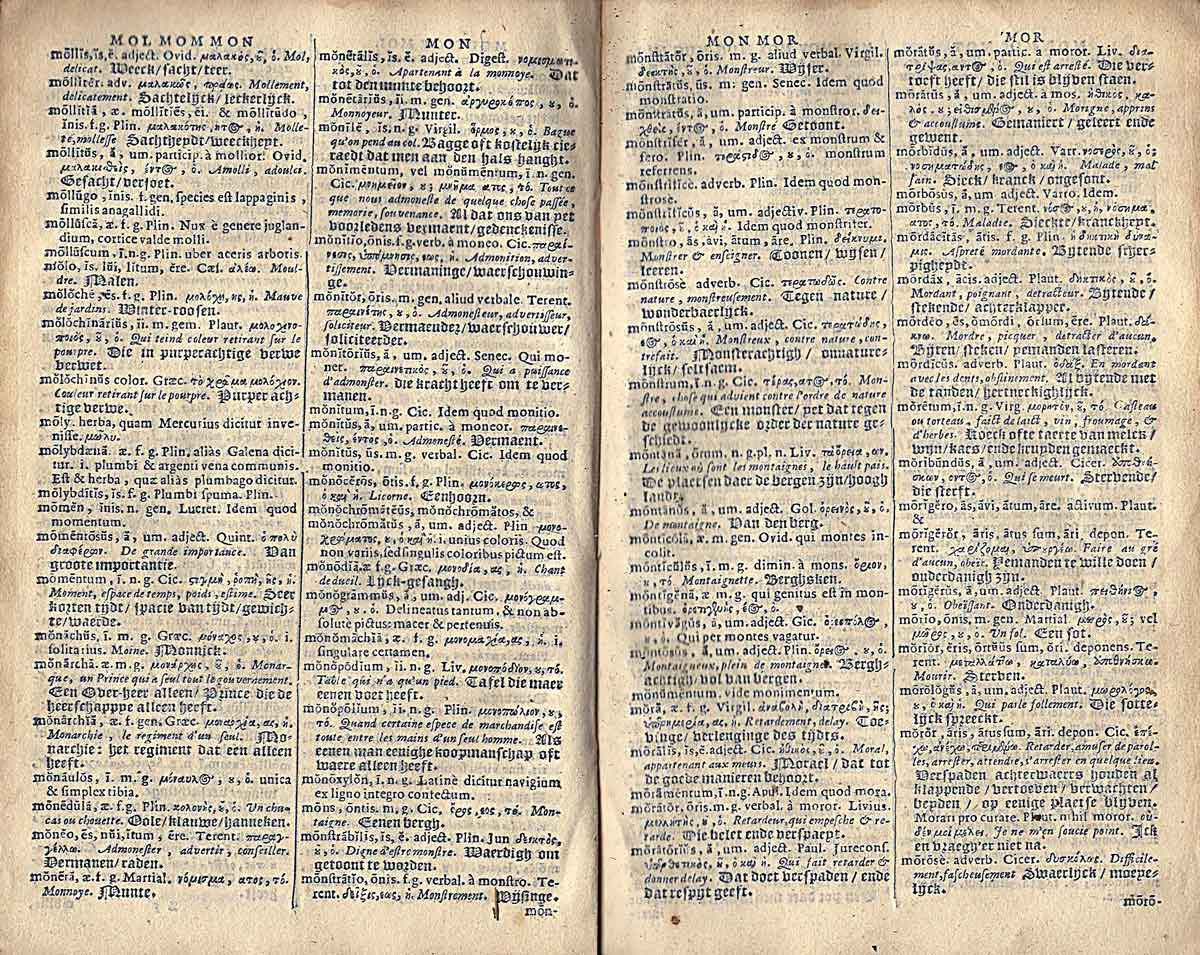 MOL MOM MON
mōllĭs, ĭs, ĕ. adject. Ovid. μαλακὸς, ȣ͂, ὁ. Mol,
delicat. Weeck/sacht/teer.
mōllĭtĕr. adv. μαλακῶς, πράως. Mollement,
delicatement. Sachtelijck/leckerlijck.
mōllĭtĭă, æ. f. & mōllĭtĭēs, ēi. & mōllĭtūdo,
ĭnis. f. g. Plin. μαλακότης, ητος, ἡ. Molle-
te, mollesse Sachtheydt/weeckheyt.
mōllītŭs, ă, um. particip. à mollior. Ovid.
μαλακωθεὶς, έντος, ὁ. Amolli, adouci.
Gesacht/versoet.
mōllūgo, ĭnis. f. gen, species est lappaginis,
similis anagallidi.
mōllūscă, æ. f. g. Plin. Nux è genere juglan-
dium, cortice valde molli.
mōllūscum, ĭ. n. g. Plin. tuber aceris arboris.
mŏlo, ĭs, lŭi, lĭtum, ĕre. Cæl. ἀλέω. Moul-
dre. Malen.
mŏlŏchē, ēs. f. g. Plin. μολόχη, ης, ἡ. Mauve
de jardins. Winter-roosen.
mŏlŏchĭnārĭus, ĭi. m. gem. Plaut. μολοχινο-
ποιὸς, ȣ͂, ὁ. Qui teind coleur retirant sur le
pourpre. Die in purperachtige verwe
verwet.
mŏlŏchĭnŭs color. Græc. τὸ χρῶμα μολόχινον.
Couleur retirant sur le pourpre. Purper ach-
tige verwe.
mōly. herba, quam Mercurius dicitur inve-
nisse. μῶλυ.
mŏlybdænă. æ. f. g. Plin. aliàs Galena dici-
tur. i. plumbi & argenti vena communis.
Est & herba, quæ aliàs plumbago dicitur.
mŏlybdītĭs, ĭs. f. g. Plumbi spuma. Plin.
mōmĕn, ĭnis. n. gen. Lucret. Idem quod
momentum.
mōmēntōsŭs, ă, um. adject. Quint. ὁ πολὺ
διαφέρων. De grande importance. Van
groote importantie.
mōmēntum, ĭ. n. g. Cic. στιγμὴ, ῥοπὴ, ῆς, ἡ.
Moment, espace de temps, poids, estime. Seer
korten tijdt/spacie van tijdt/gewich-
te/waerde.
mŏnăchŭs, ĭ. m. g. Græc. μοναχὸς, ȣ͂, ὁ. i.
solitarius. Moine. Monnick.
mŏnārchă. æ. m. g. μονάρχης, ȣ, ὁ. Monar-
que, un Prince qui a seul tout le gouvernement.
Een Over-heer alleen/Prince die de
heerschappye alleen heeft.
mŏnārchĭă, æ. f. gen. Græc. μοναρχία, ας, ἡ.
Monarchie, le regiment d'un seul. Mo-
narchie: het regiment dat een alleen
heeft.
mŏnaulŏs, ĭ. m. g. μόναυλος, ȣ, ὁ. unica
& simplex tibia.
mŏnēdŭlă, æ. f. g. Plin. κολοιὸς, ȣ͂, ὁ. Un chu-
cas ou chouette. Oole/klauwe/hanneken.
mŏnĕo, ēs, nŭi, ĭtum, ēre. Terent. παραγ-
γέλλω. Admonester, advertir, conseiller.
Vermanen/raden.
mŏnērā, æ. f. g. Martial. νόμισμα, ατος, τό.
Monnoye. Munte.
MON
mŏnētālĭs, ĭs, ĕ. adject. Digest. νομισματι-
κὸς, ȣ͂, ὁ. Apartenant à la monnoye. Dat
tot den munte behoort.
mŏnētārĭŭs, ĭi. m. gen. ἀργυροκόπος, ȣ, ὁ.
Monnoyeur. Munter.
mŏnīlĕ, ĭs, n. g. Virgil. ὅρμος, ȣ, ὁ. Bague
qu'on pend au col. Bagge oft kostelijk cie-
raedt dat men aan den hals hanght.
mŏnĭmēntum, vel mŏnŭmēntum, ĭ. n. gen.
Cic. μνημεῖον, ȣ; μνῆμα ατος, τό. Tout ce
que nous admoneste de quelque chose passée,
memorie, souvenance. Al dat ons van yet
voorledens vermaent/gedenckenisse.
mŏnĭtĭo, ōnis. f. g. verb. à moneo. Cic. παραί-
νεσις, ὑπόμνησις, εως, ἡ. Admonition, adver-
tissement. Vermaninge/waerschouwin-
ge.
mŏnĭtŏr, ōris. m. gen. aliud verbale. Terent.
παραινέτης, ȣ, ὁ. Admonesteur, advertisseur,
soliciteur. Vermaender/waerschouwer/
soliciteerder.
mŏnĭtōrĭŭs, ă, um. adject. Senec. Qui mo-
net. παραινετικὸς, ȣ͂, ὁ. Qui a puissance
d'admonster. die kracht heeft om te ver-
manen.
mŏnĭtum, ĭ. n. g. Cic. Idem quod monitio.
mŏnĭtŭs, ă, um. partic. à moneor. παραινη-
θεὶς, έντος, ὁ. Admonesté. Vermaent.
mŏnĭtŭs, ūs. m. g. verbal. Cic. Idem quod
monitio.
mŏnŏcĕrōs, ōtis. f. g. Plin. μονόκερως, ατος,
ὁ καὶ ἡ. Licorne. Eenhoorn.
mŏnŏchrōmătĕŭs, mŏnŏchrōmătŏs, &
mŏnŏchrōmătŭs, ă, um. adject. Plin μονο-
χρώματος, ȣ, ὁ καὶ ἡ. i. unius coloris. Quod
non variis, sed singulis coloribus pictum est.
mŏnōdĭă, æ. f. g. Græc. μονωδία, ας, ἡ. Chant
de dueil. Lijck-gesangh.
mŏnŏgrāmmŭs, ă, um. adj. Cic. μονόγραμ-
μος, ȣ, ὁ. Delineatus tantum, & non ab-
solutè pictus: macer & pertenuis.
mŏnŏmăchĭă, æ. f. g. μονομαχία, ας, ἡ. i.
singulare certamen.
mŏnŏpŏdĭum, ĭi. n. g. Liv. μονοπόδιον, ȣ, τό.
Table qui n'a qu'un pied. Tafel die maer
eenen voet heeft.
mŏnŏpōlĭum, ĭi. n. g. Plin. μονοπώλιον, ȣ,
τό. Quand certaine espece de marchandise est
toute entre les mains d'un seul homme. Als
eenen man eenighe koopmanschap oft
waere alleen heeft.
mŏnŏxўlŏn, ĭ. n. g. Latinè dicitur navigium
ex ligno integro contectum.
mōns, ōntis. m. g. Cic. ὄρος, εος, τό. Mon-
taigne. Eenen bergh.
mōnstrābĭlĭs, ĭs, ĕ. adject. Plin. Jun δεικτὸς,
ȣ͂, ὁ. Digne d'estre monstre. Waerdigh om
getoont te worden.
mōnstrātĭo, ōnis. f. g. verbal. à monstro. Te-
rent. δεῖξις, εως, ἡ. Monstrement. Wijsinge.
mōn-
MON MOR
mōnstrātŏr, ōris. m. g. aliud verbal. Virgil.
δεικτὴς, ȣ͂, ὁ. Monstreur. Wijser.
mōnstrātŭs, ūs. m: gen. Senec. Idem quod
monstratio.
mōnstrātŭs, ă, um. particip. à monstror. δει-
χθεὶς, έντος, ὁ. Monstré Getoont.
mōnstrĭfĕr, ă, um. adject. ex monstrum &
fero. Plin. τερατώδης, ȣ, ὁ. monstrum
referens.
mōnstrĭfĭcē. adverb. Plin. Idem quod mon-
strosè.
mōnstrĭfĭcŭs, ă, um. adjectiv. Plin. τερατο-
ποιὸς, ȣ͂, ὁ καὶ ἡ. Idem quod monstrifer.
mōnstro, ās, āvi, ātum, āre. Plin. δείκνυμι.
Monstrer & enseigner. Toonen/wijsen/
leeren.
mōnstrōsē adverb. Cic. τερατωδῶς. Contre
nature, monstreusement. Tegen nature/
wonderbaerlijck.
mōnstrōsŭs, ă, um. adject. Cic. τερατώδης,
εος, ὁ καὶ ἡ. Monstreux, contre nature, con-
trefait. Monsterachtigh/onnature-
lijck/seltsaem.
mōnstrum, ĭ. n. g. Cic. τέρας, ατος, τό. Mon-
stre, chose qui advient contre l'ordre de nature
accoustume. Een monster/yet dat tegen
de gewoonlijcke order der nature ge-
schiedt.
mōntānă, ōrum. n. g. pl. n. Liv. τὰ ὄρεια, ων.
Les lieux où sont les montaignes, le hault pais.
De plaetsen daer de bergen zijn/hoogh
landt.
mōntānŭs, ă, um. adject. Gol. ὀρεινὸς, ȣ͂, ὁ.
De montaigne. Van den berg.
mōntĭcŏlă, æ. m. gen. Ovid. qui montes in-
colit.
mōntĭcŭlŭs, ĭ. m. g. dimin. à mons. ὄριον,
ȣ, τό. Montaignette. Berghsken.
mōntĭgĕnă, æ. m. g. qui genitus est in mon-
tibus. ὀρειγενὴς, έος, ὁ.
mōntĭvăgŭs, ă, um. adject. Gic. ὀρεσίπολος,
ȣ, ὁ. Qui per montes vagatur.
mōntōsŭs, ă, um. adject. Plin. ὀρεινὸς, ȣ͂, ὁ.
Montaigneux, plein de montaigne. Bergh-
achtigh/vol van bergen.
mŏnŭmēntum, vide monimentum.
mŏră, æ. f. g. Virgil. ἀναβολὴ, διατριβὴ, ῆς;
ἡ. Retardement, delay. Toe-
vinge/verlenginge des tijdts.
mōrālĭs, ĭs, ĕ. adject. Cic. ἠθικὸς, ȣ͂, ὁ. Moral,
appartenant aux meurs. Morael/dat tot
de goede manieren behoort.
mŏrāmēntum, ĭ. n. g. Apul. Idem quod mora.
mŏrātŏr, ōris. m. g. verbal. à moror. Livius.
μελλητὴς, ȣ͂, ὁ. Retardeur, qui empesche & re-
tarde. Die belet ende verspaeyt.
mŏrātōrĭŭs, ă, um. adject. Paul. Jureconf.
ȣ͂, ὁ καὶ ἡ. Qui fait retarder &
donner delay. Dat doet verspaden/ende
dat respijt geeft.
MOR
mŏrātŭs, ă, um. partic. à moror. Liv. δια-
τρίψας, αντος, ὁ. Qui est arresté. Die ver-
toeft heeft/die stil is blyven staen.
mōrātŭs, ă, um. adject. à mos. ἠθικὸς, κα-
λὸς, ȣ; εἰθισμένος, ȣ, ὁ. Morigné, apprins
& accoustumé. Gemaniert/geleert ende
gewent.
mōrbĭdŭs, ă, um. adject. Varr. νοσερὸς, ȣ͂, ὁ;
νοσηματώδης, εος, ὁ καὶ ἡ. Malade, mal
sain. Sieck/kranck/ongesont.
mōrbōsŭs, ă, um. adject. Varro. Idem.
mōrbŭs, ĭ. m. g. Terent. νόσος, ȣ, ἡ, νόσημα,
ατος, τό. Maladie. Sieckte/kranckheyt.
mōrdācĭtās, ātis. f. g. Plin. ἡ δηκτικὴ δύνα-
μις. Aspreté mordante. Bytende scher-
pigheydt.
mōrdāx, ācis. adject. Plaut. δηκτικὸς, ȣ͂, ὁ.
Mordant, poignant, detracteur. Bijtende/
stekende/achterklapper.
mōrdĕo, ēs, mŏmōrdi, ōrsum, ēre. Plaut. δά-
κνω. Mordre, picquer, detracter d'aucun.
Bijten/steken/yemanden lasteren.
mōrdĭcŭs. adverb. Plaut. ὀδάξ. En mordant
avec les dents, obstinement. Al bytende met
de tanden/hertneckighlijck.
mŏrētum, ĭ. n. g. Virg. μορητὸν, ȣ͂, τό. Gasteau
ou torteau, faict de laict, vin, froumage, &
d'herbes. Koeck ofte taerte van melck/
wijn/kaes/ende kruyden gemaeckt.
mŏrĭbūndŭs, ă, um. adject. Cicer. ἀποθνή-
σκων, οντος, ὁ. Qui se meurt. Stervende/
die sterft.
mōrĭgĕro, ās, āvi, ātum, āre. activum. Plaut.
&
mōrĭgĕrŏr, āris, ātus sum, āri. depon. Te-
rent. χαρίζομαι, ὑπουργέω. Faire au gré
d'aucun, obeïr. Yemanden te wille doen/
onderdanigh zijn.
mōrĭgĕrŭs, ă, um. adject. Plaut πειθήνιος,
ȣ, ὁ. Obeïssant. Onderdanigh.
mōrĭo, ōnis, m. gen. Martial μωρὸς, ȣ͂; vel
μῶρος, ȣ, ὁ. Un sol. Een sot.
mŏrĭŏr, ĕris, ōrtŭus sum, ŏri. deponens. Te-
rent. μεταλλάττω, καταλύω, ἀποθνήσκω.
Mourir. Sterven.
mōrŏlŏgŭs, ă, um. adject. Plaut. μωρολόγος,
ȣ, ὁ. Qui parle follement. Die sotte-
lijck spreeckt.
mŏrŏr, āris, ātus sum, āri. depon. Cic. ἐπέ-
χω, ἀνέχω, περιμένω. Retarder, amuser de parol-
les, arrester, attendre, s'arrester en quelque lieu.
Verspaden achterwaerts houden al
klappende/vertoeven/verwachten/
beyden/op eenige plaetse blijven.
Morari pro curate. Plaut. nihil moror. οὐ-
δέν μοι μέλει. Je ne m'en soucie point. Ick
en vraegh'er niet na.
mōrōsē. adverb. Cicer. δυσκόλως. Difficile-
ment, fascheusement Swaerlijck/moeye-
lijck.
mōrō-